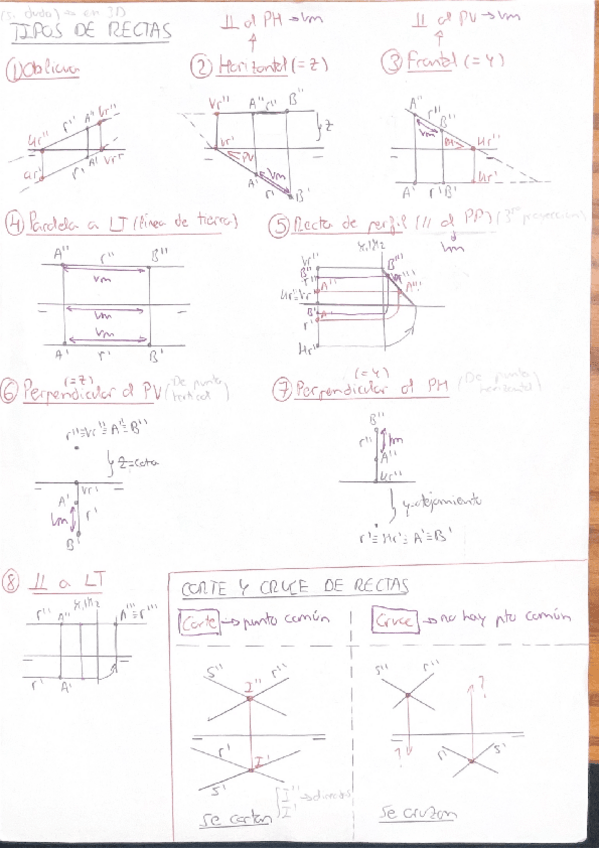 (si dudas) → en 3D
TIPOS DE RECTAS
// al PH → Vm
// al PV → Vm
① Oblicua
② Horizontal (= Z)
③ Frontal (= Y)
Hr'' r'' A'' Vr''
Hr' r' A' Vr'
Vr'' A'' r'' B''
Z
Vr' PV Vm
A' r' B'
A'' r''
Vm B''
Hr''
Hr'
A' r' B'
④ Paralela a LT (línea de tierra)
⑤ Recta de perfil (// al PP) (3ª proyección)
Vm
A'' r'' B''
Vm
Vm
Vm
A' r' B'
Vr'' B'''
B''
r''
A'' A'''
Hr''≡Vr'
B'
r' A'
Hr'
(= Z)
⑥ Perpendicular al PV (De punta vertical)
(= Y)
⑦ Perpendicular al PH (De punta horizontal)
r''≡Vr''≡A''≡B''
Z=cota
Vr'
A'
Vm r'
B'
B''
r'' Vm
A''
Hr''
y=alejamiento
r'≡Hr'≡A'≡B'
⑧ // a LT
r'' A'' A'''≡r'''
r' A'
CORTE Y CRUCE DE RECTAS
Corte → punto común
Cruce → no hay pto común
s'' r''
I''
r' I'
s'
I''
I'
se cortan
s'' r''
?
?
r' s'
se cruzan